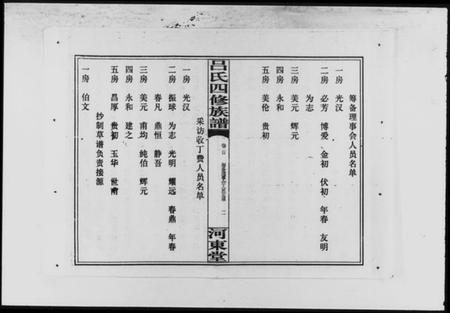 筹备理事会人员名单
一房 光汉
二房 必芳 博爱 金初 伏初 年春 友明
为志
三房 美元 辉元
四房 永和
五房 美伦 贵初
吕氏四修族譜
卷首
二
河東堂
采访收丁费人员名单
一房 光汉
二房 振球 为志 光明 耀远 春鼎 年春
春凡 鼎恒 静吾
三房 美元 南均 纯伯 辉元
四房 永和 建之
五房 昌厚 贵初 玉华 世甫
抄制草谱负责接源
一房 伯文